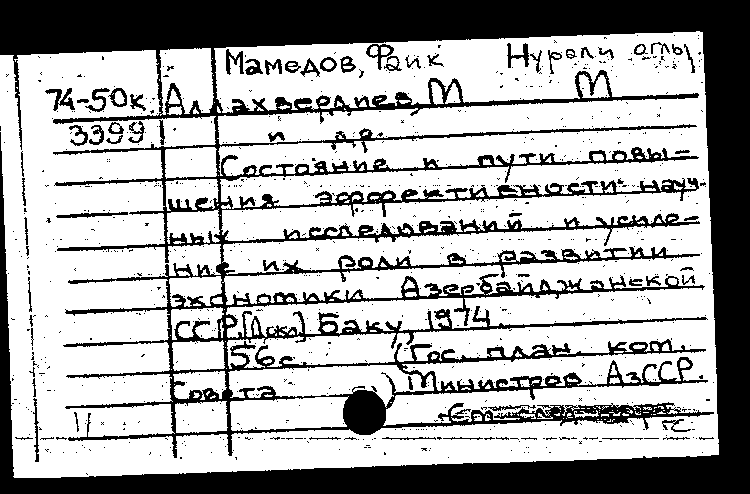 Мамедов, Фаик Нурали оглы
74-50к. Аллахвердиев, М М
3399 и др.
Состояние и пути повы-
шения эффективности науч-
ных исследований и усиле-
ние их роли в развитии
экономики Азербайджанской
ССР. [Докл] Баку, 1974.
56 с. (Гос. план. ком.
Совета ) Министров АзССР.
11